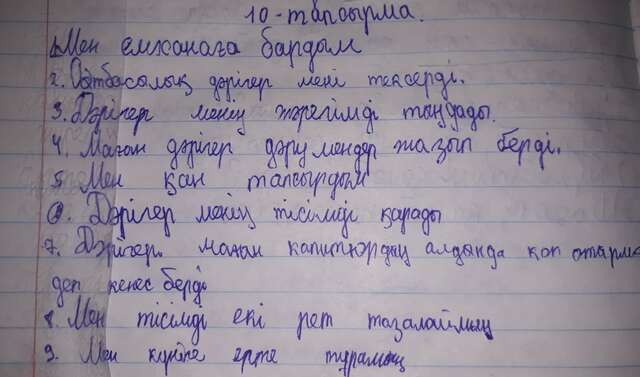 10-тапсырма.
1. Мен емханаға бардым
2. Отбасолық дәрігер мені тексерді.
3. Дәрігер менің жүрегімді тыңдады.
4. Маған дәрігер дәрумендер жазып берді.
5. Мен қан тапсырдым
6. Дәрігер менің тісімді қарады
7. Дәрігер маған компютордың алдында көп отырма
деп кеңес берді
8. Мен тісімді екі рет тазалаймын
9. Мен күніне ерте тұрамын